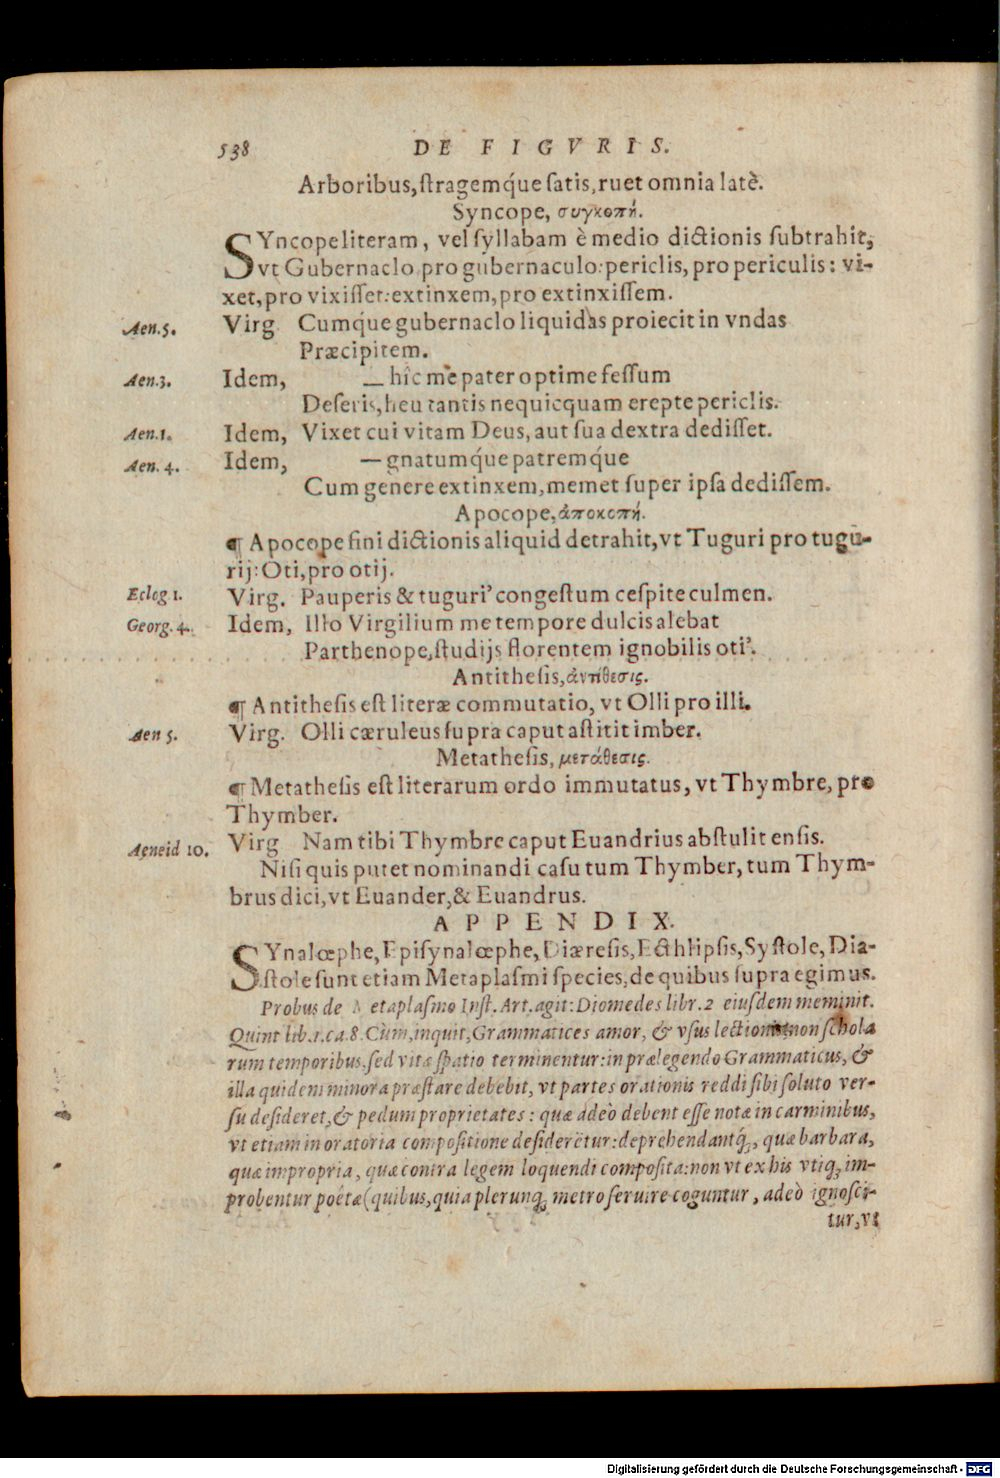 538 DE FIGVRIS.
Arboribus, ſtragemq́ue ſatis, ruet omnia latè.
Syncope, συγκοπή.
SYncope literam, vel ſyllabam è medio dictionis ſubtrahit,
vt Gubernaclo pro gubernaculo: periclis, pro periculis: vi-
xet, pro vixiſſet: extinxem, pro extinxiſſem.
Aen. 5. Virg Cumq́ue gubernaclo liquidas proiecit in vndas
Præcipitem.
Aen. 3. Idem, — hîc me pater optime feſſum
Deſeris, heu tantis nequicquam erepte periclis.
Aen. 1. Idem, Vixet cui vitam Deus, aut ſua dextra dediſſet.
Aen. 4. Idem, — gnatumq́ue patremq́ue
Cum genere extinxem, memet ſuper ipſa dediſſem.
Apocope, ἀποκοπή.
¶ Apocope fini dictionis aliquid detrahit, vt Tuguri pro tugu-
rij: Oti, pro otij.
Eclog 1. Virg. Pauperis & tuguri’ congeſtum ceſpite culmen.
Georg. 4. Idem, Illo Virgilium me tempore dulcis alebat
Parthenope, ſtudijs florentem ignobilis oti’.
Antitheſis, ἀντίθεσις.
¶ Antitheſis eſt literæ commutatio, vt Olli pro illi.
Aen 5. Virg. Olli cæruleus ſupra caput aſtitit imber.
Metatheſis, μετάθεσις.
¶ Metatheſis eſt literarum ordo immutatus, vt Thymbre, pro
Thymber.
Aeneid 10. Virg Nam tibi Thymbre caput Euandrius abſtulit enſis.
Niſi quis putet nominandi caſu tum Thymber, tum Thym-
brus dici, vt Euander, & Euandrus.
APPENDIX.
SYnalœphe, Epiſynalœphe, Diæreſis, Ecthlipſis, Syſtole, Dia-
ſtole ſunt etiam Metaplaſmi ſpecies, de quibus ſupra egimus.
Probus de Metaplaſmo Inſt. Art. agit: Diomedes libr. 2 eiuſdem meminit.
Quint lib. 1. ca. 8. Cùm, inquit, Grammatices amor, & vſus lectionis non ſchola
rum temporibus, ſed vitæ ſpatio terminentur: in prælegendo Grammaticus, &
illa quidem minora præſtare debebit, vt partes orationis reddi ſibi ſoluto ver-
ſu deſideret, & pedum proprietates: quæ adeò debent eſſe notæ in carminibus,
vt etiam in oratoria compoſitione deſiderētur: deprehendantq́;, quæ barbara,
quæ impropria, quæ contra legem loquendi compoſita: non vt ex his vtiq; im-
probentur poëtæ (quibus, quia plerunq; metro ſeruire coguntur, adeò ignoſci-
tur, vt
Digitalisierung gefördert durch die Deutsche Forschungsgemeinschaft - DFG